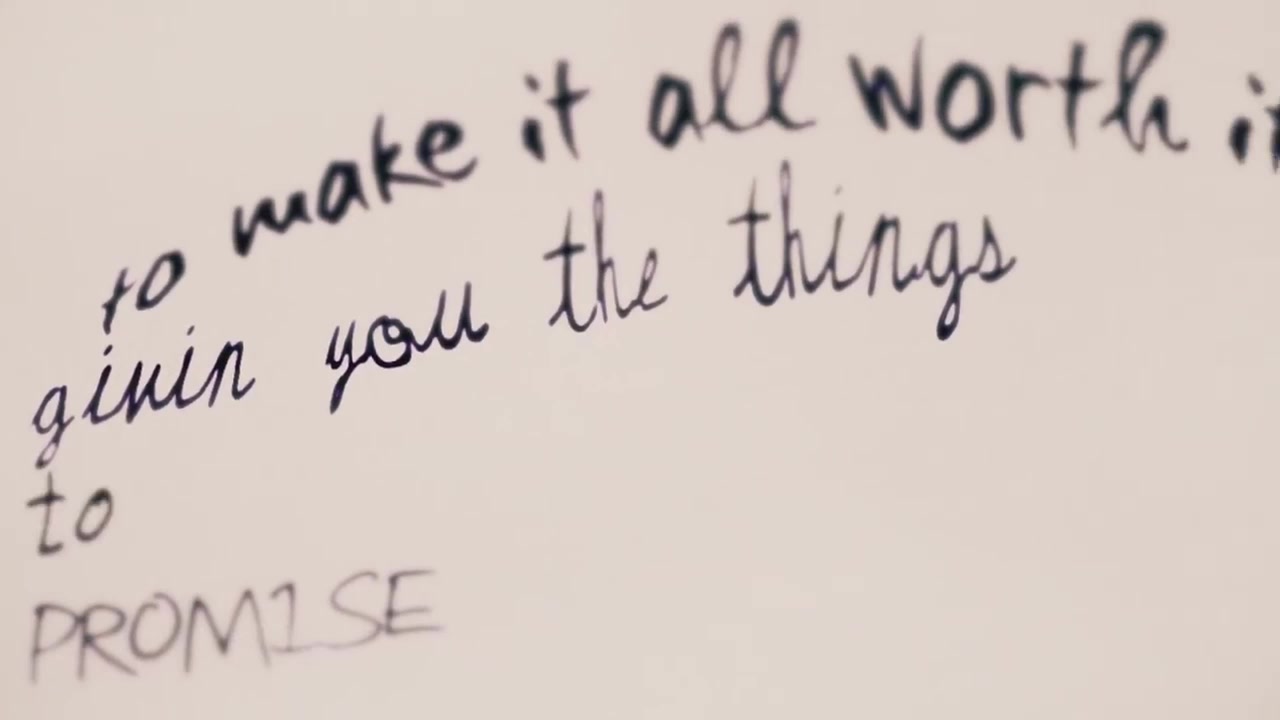 to make it all worth it
givin you the things
to
PROMISE